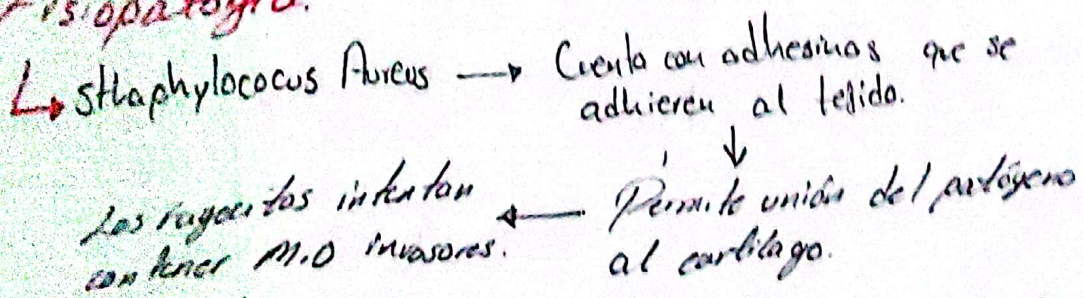 Fisiopatogía.
↳ sthaphylococus Aureus → Cuenta con adhesinas que se
adhieren al tejido.
↓
Permite unión del patógeno
al cartílago.
← Los fagocitos intentan
contener M.O invasores.